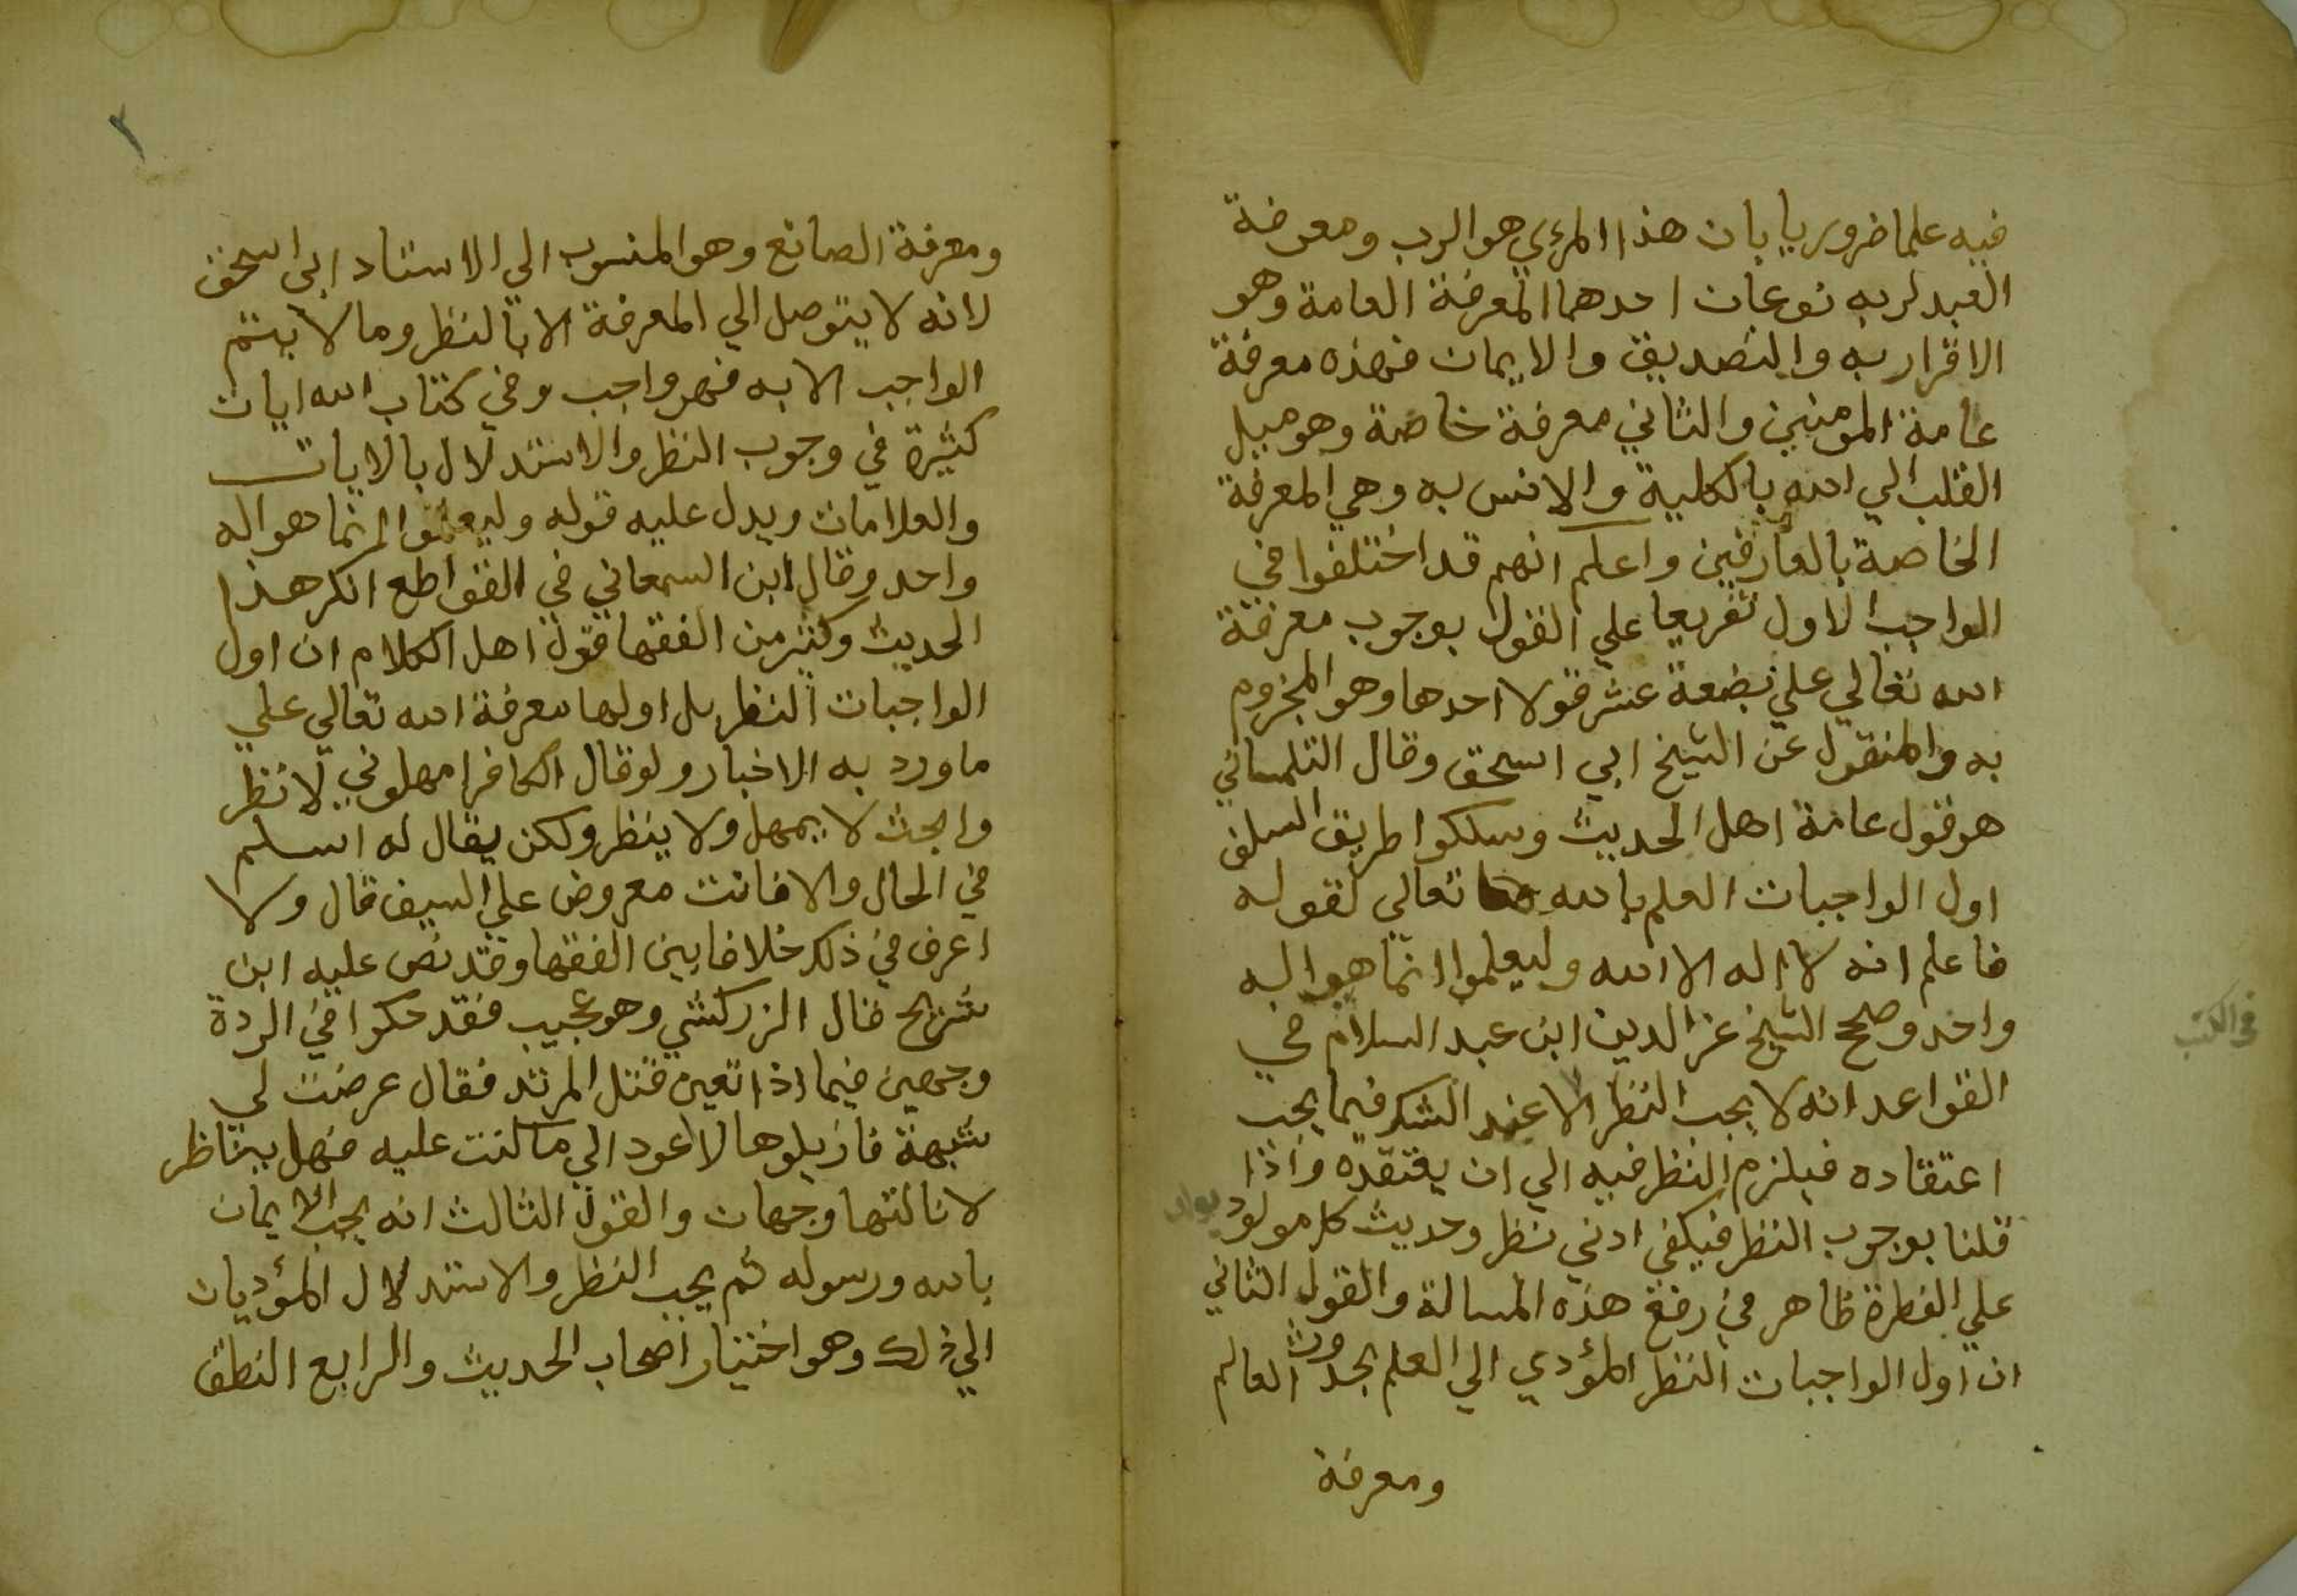 فيه علما ضروريا بان هذا المرءي هو الرب ومعرفة
العبد لربه نوعان احدهما المعرفة العامة وهو
الاقرار به والتصديق والايمان فهذه معرفة
عامة المومنين والثاني معرفة خاصة وهو ميل
القلب الي الله بالكلية والانس به وهي المعرفة
الخاصة بالعارفين واعلم انهم قد اختلفوا في
الواجب الاول تفريعا علي القول بوجوب معرفة
الله تعالي علي بضعة عشر قولا احدها وهو المجزوم
به والمنقول عن الشيخ ابي اسحق وقال التلمساني
هو قول عامة اهل الحديث وسلكوا طريق السلف
اول الواجبات العلم بالله تعالي لقوله
فاعلم انه لا اله الا الله وليعلموا انما هو اله
واحد وصحح الشيخ عز الدين ابن عبد السلام في
القواعد انه لا يجب النظر الا عند الشك فيما يجب
اعتقاده فيلزم النظر فيه الي ان يعتقده واذا
قلنا بوجوب النظر فيكفي ادني نظر وحديث كل مولود يولد
علي الفطرة ظاهر في رفع هذه المسالة والقول الثاني
ان اول الواجبات النظر المؤدي الي العلم بحدوث العالم
ومعرفة
في الكتب
٢
ومعرفة الصانع وهو المنسوب الي الاستاد ابي اسحق
لانه لا يتوصل الي المعرفة الا بالنظر وما لا يتم
الواجب الا به فهو واجب وفي كتاب الله ايات
كثيرة في وجوب النظر والاستدلال بالايات
والعلامات ويدل عليه قوله وليعلموا انما هو اله
واحد وقال ابن السمعاني في القواطع انكر هذا
الحديث وكثير من الفقها قول اهل الكلام ان اول
الواجبات النظر بل اولها معرفة الله تعالي علي
ما ورد به الاخبار ولو قال الكافر امهلوني لانظر
وابحث لا يمهل ولا ينظر ولكن يقال له اسلم
في الحال والا فانت معروض علي السيف قال ولا
اعرف في ذلك خلافا بين الفقها وقد نص عليه ابن
شريح قال الزركشي وهو عجيب فقد حكوا في الردة
وجهين فيما اذا تعين قتل المرتد فقال عرضت لي
شبهة فازيلوها لاعود الي ما كنت عليه فهل يناظر
لانالتها وجهان والقول الثالث انه يجب الايمان
بالله ورسوله ثم يجب النظر والاستدلال المؤديان
الي ذلك وهو اختيار اصحاب الحديث والرابع النطق